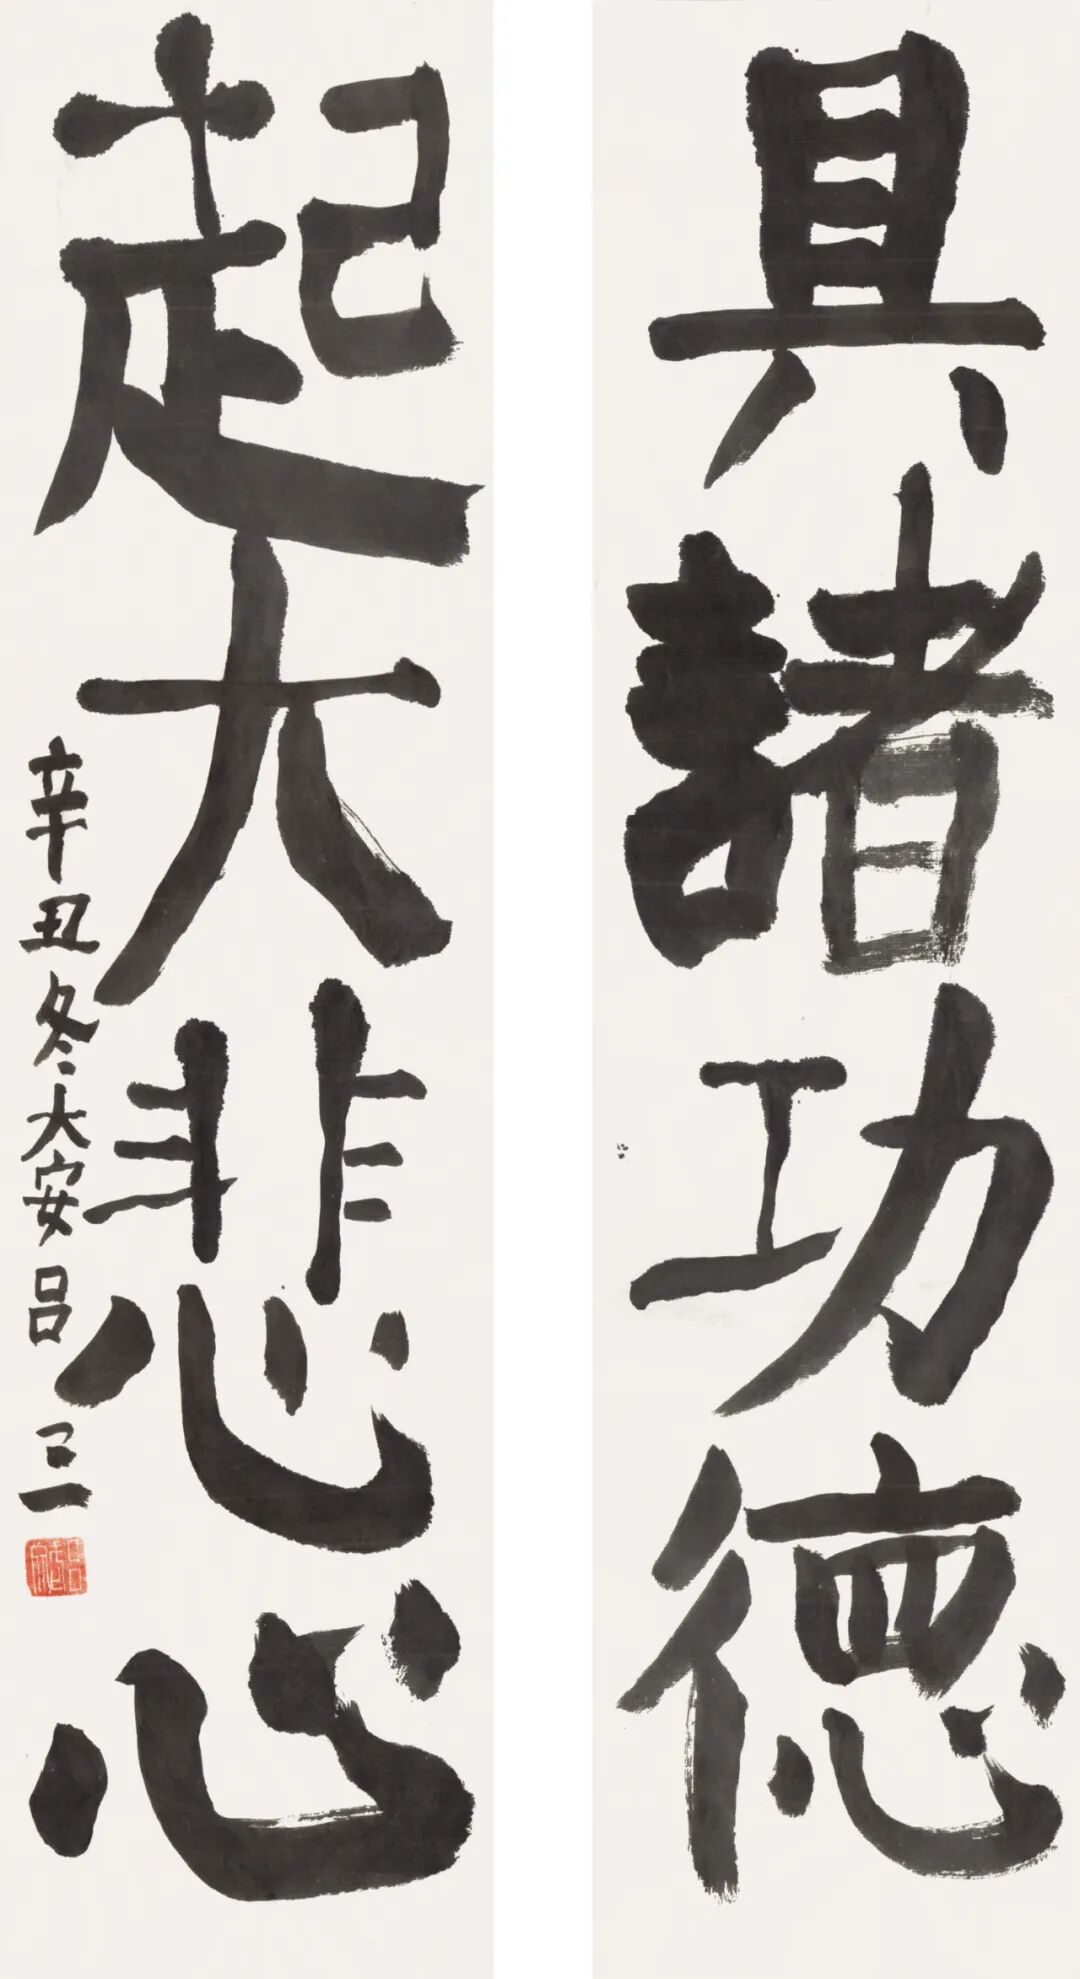 具諸功德
起大悲心
辛丑冬大安呂三